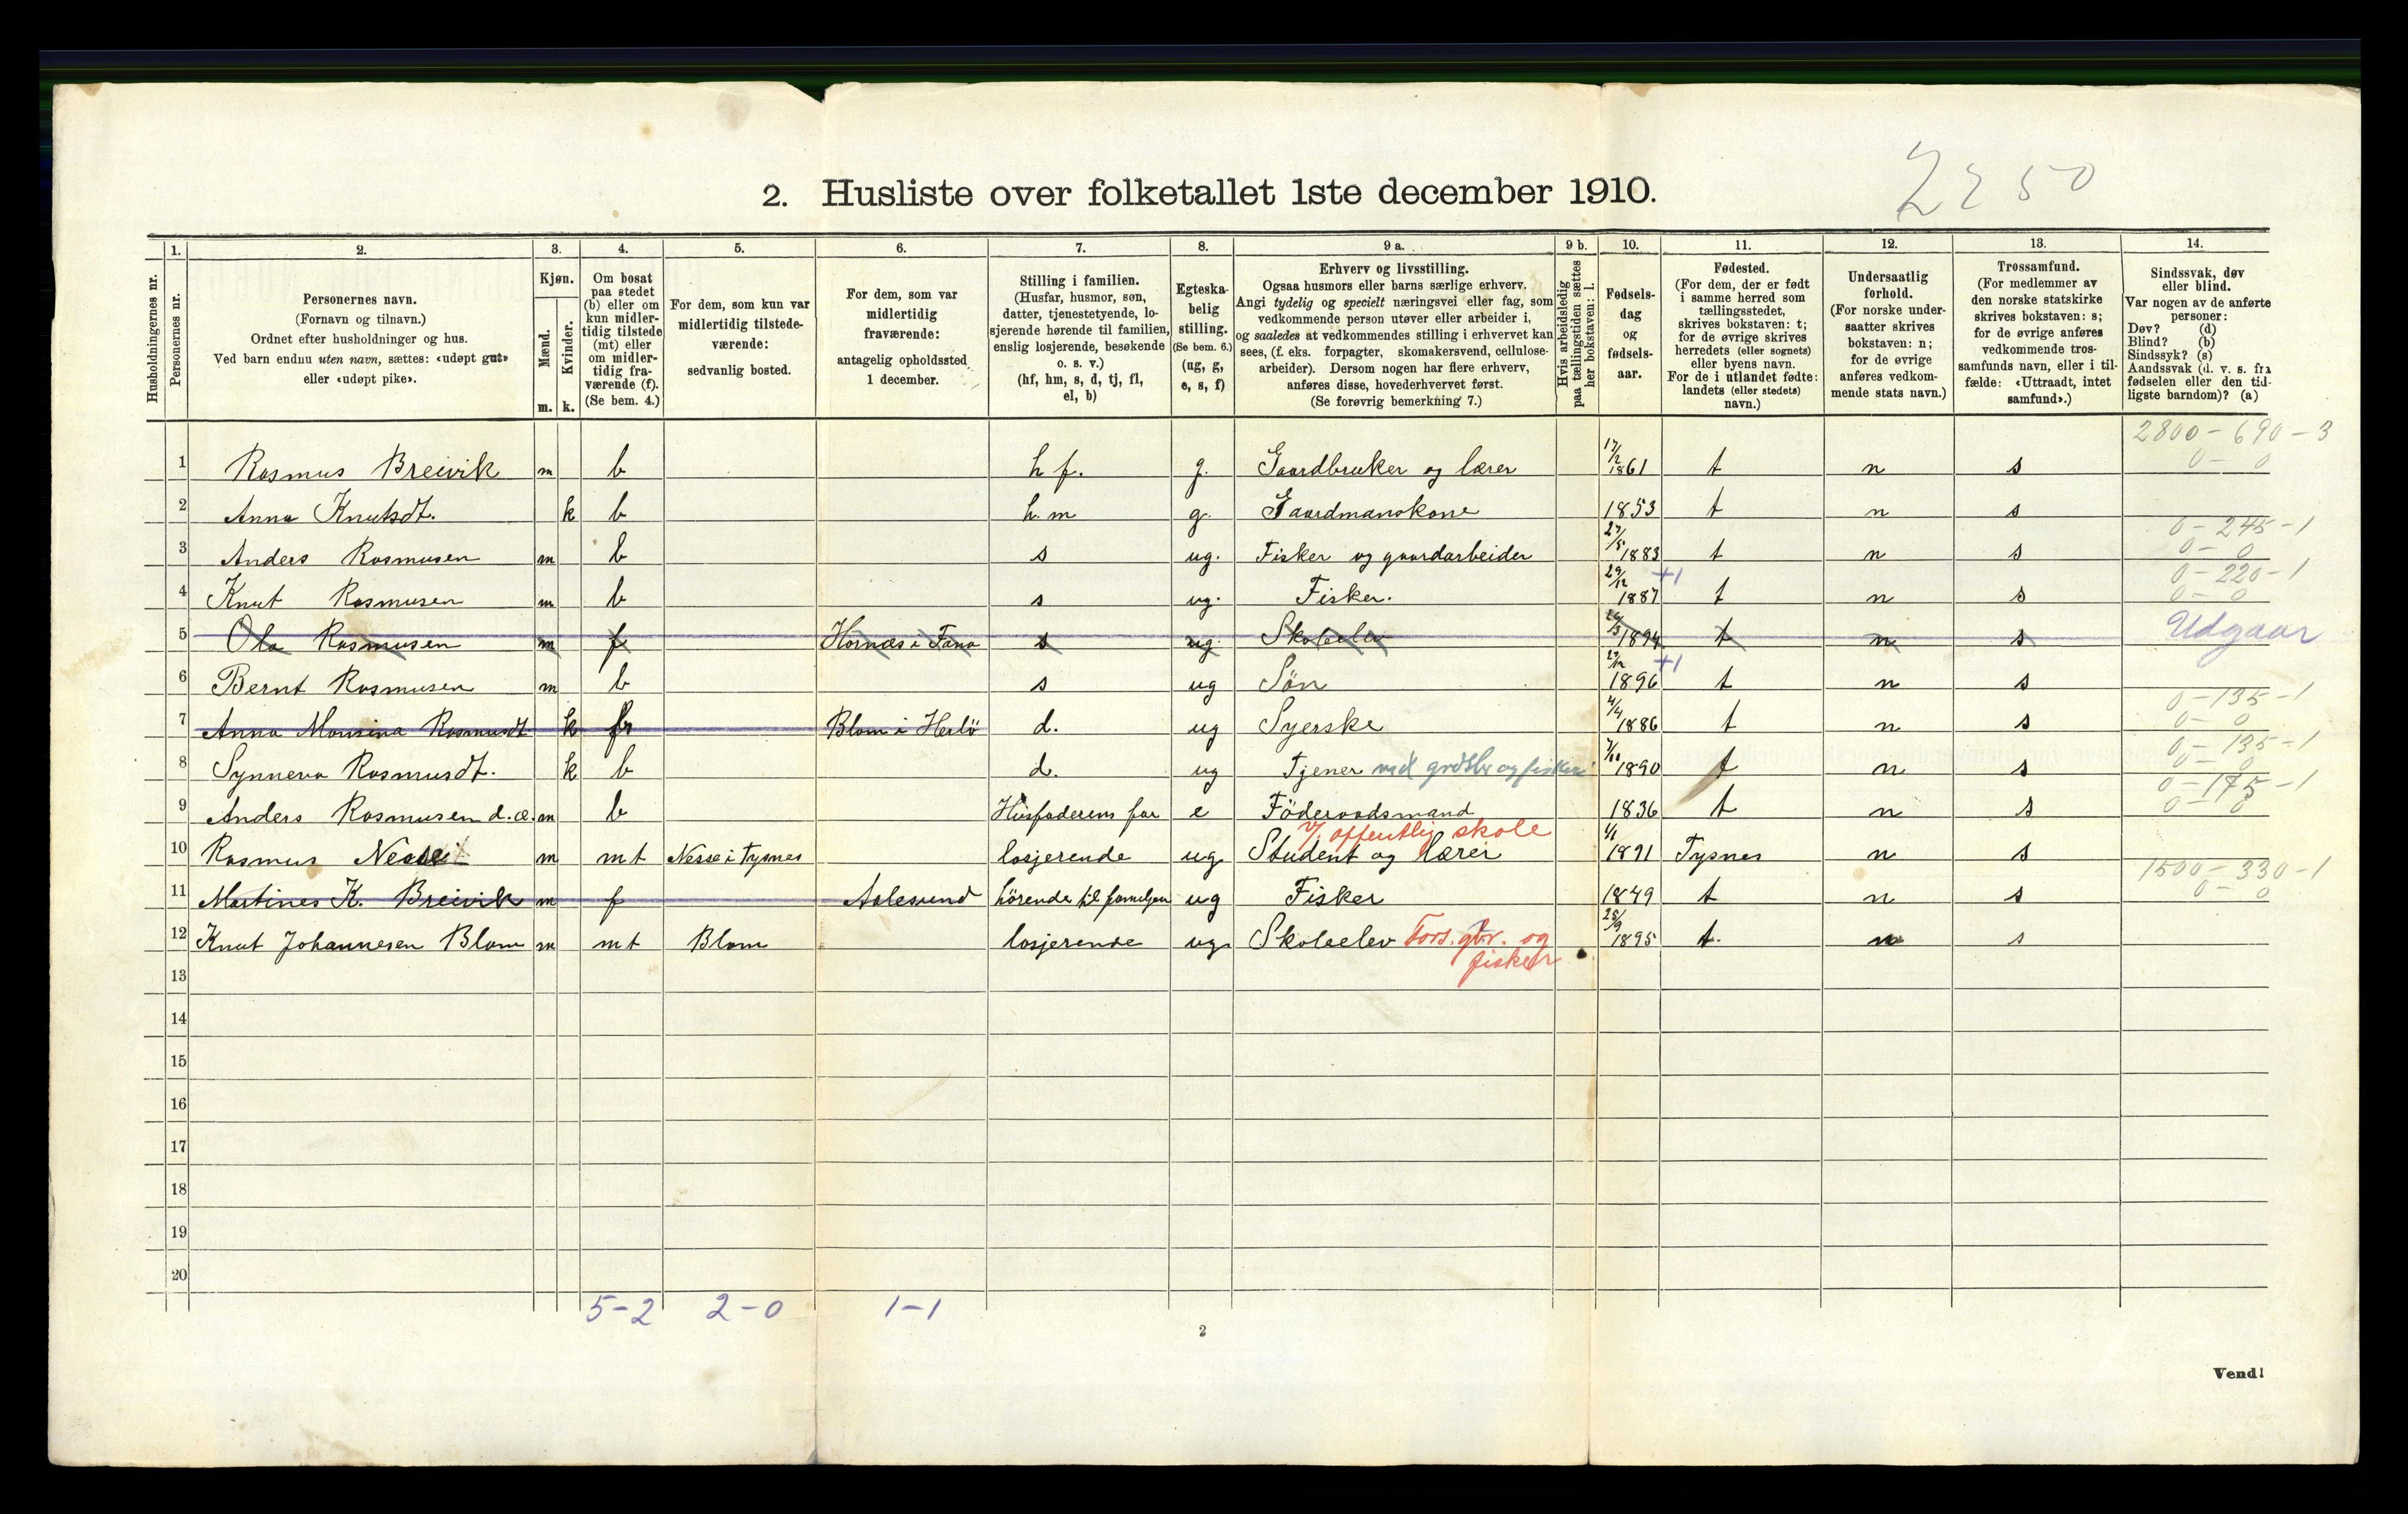 2250
2. Husliste over folketallet 1ste december 1910.
Husholdningernes nr.
1. Personernes nr.
2. Personernes navn. (Fornavn og tilnavn.) Ordnet efter husholdninger og hus. Ved barn endnu uten navn, sættes: «udøpt gut» eller «udøpt pike».
3. Kjøn. Mænd. m. Kvinder. k.
4. Om bosat paa stedet (b) eller om kun midler- tidig tilstede (mt) eller om midler- tidig fra- værende (f). (Se bem. 4.)
5. For dem, som kun var midlertidig tilstede- værende: sedvanlig bosted.
6. For dem, som var midlertidig fraværende: antagelig opholdssted 1 december.
7. Stilling i familien. (Husfar, husmor, søn, datter, tjenestetyende, lo- sjerende hørende til familien, enslig losjerende, besøkende o. s. v.) (hf, hm, s, d, tj, fl, el, b)
8. Egteska- belig stilling. (Se bem. 6.) (ug, g, e, s, f)
9 a. Erhverv og livsstilling. Ogsaa husmors eller barns særlige erhverv. Angi tydelig og specielt næringsvei eller fag, som vedkommende person utøver eller arbeider i, og saaledes at vedkommendes stilling i erhvervet kan sees, (f. eks. forpagter, skomakersvend, cellulose- arbeider). Dersom nogen har flere erhverv, anføres disse, hovederhvervet først. (Se forøvrig bemerkning 7.)
9 b. Hvis arbeidsledig paa tællingstiden sættes her bokstaven: l.
10. Fødsels- dag og fødsels- aar.
11. Fødested. (For dem, der er født i samme herred som tællingsstedet, skrives bokstaven: t; for de øvrige skrives herredets (eller sognets) eller byens navn. For de i utlandet fødte: landets (eller stedets) navn.)
12. Undersaatlig forhold. (For norske under- saatter skrives bokstaven: n; for de øvrige anføres vedkom- mende stats navn.)
13. Trossamfund. (For medlemmer av den norske statskirke skrives bokstaven: s; for de øvrige anføres vedkommende tros- samfunds navn, eller i til- fælde: «Uttraadt, intet samfund».)
14. Sindssvak, døv eller blind. Var nogen av de anførte personer: Døv? (d) Blind? (b) Sindssyk? (s) Aandssvak (d. v. s. fra fødselen eller den tid- ligste barndom)? (a)
1 Rasmus Breivik m b h f. g. Gaardbruker og lærer 17/12 1861 t n s 2800-690-3 0-0
2 Anna Knutsdt. k b h.m g. Gaardmanskone 1853 t n s
3 Anders Rasmusen m b s ug. Fisker og gaardarbeider 27/5 1883 t n s 0-245-1 0-0
4 Knut Rasmusen m b s ug. Fisker. 29/12 1887 +1 t n s 0-220-1 0-0
5 Ola Rasmusen m f Hornæs i Fana s ug Skoleelev 1894 t n s Udgaar
6 Bernt Rasmusen m b s ug Søn 29/12 1896 +1 t n s
7 Anna Monsina Rasmusdt. k f Blom i Herlö d. ug Syerske 4/4 1886 t n s 0-135-1 0-0
8 Synneva Rasmusdt. k b d. ug Tjener ved grdsbr og fiskeri 7/11 1890 t n s 0-135-1 0-0
9 Anders Rasmusen d. æ. m b Husfaderens far e Föderaadsmand 1836 t n s 0-175-1 0-0
10 Rasmus m mt Nesse i Tysnes losjerende ug. Student og lærer v/ offentlig skole 1/1 1891 Tysnes n s
11 Martines K. Breivik m f Aalesund hörende til familjen ug Fisker 1849 t n s 1500-330-1 0-0
12 Knut Johannesen Blom m mt Blom losjerende ug. Skoleelev Fors. gbr. og fisker 25/9 1895 t. n s
13
14
15
16
17
18
19
20
5-2 2-0 1-1
2
Vend!